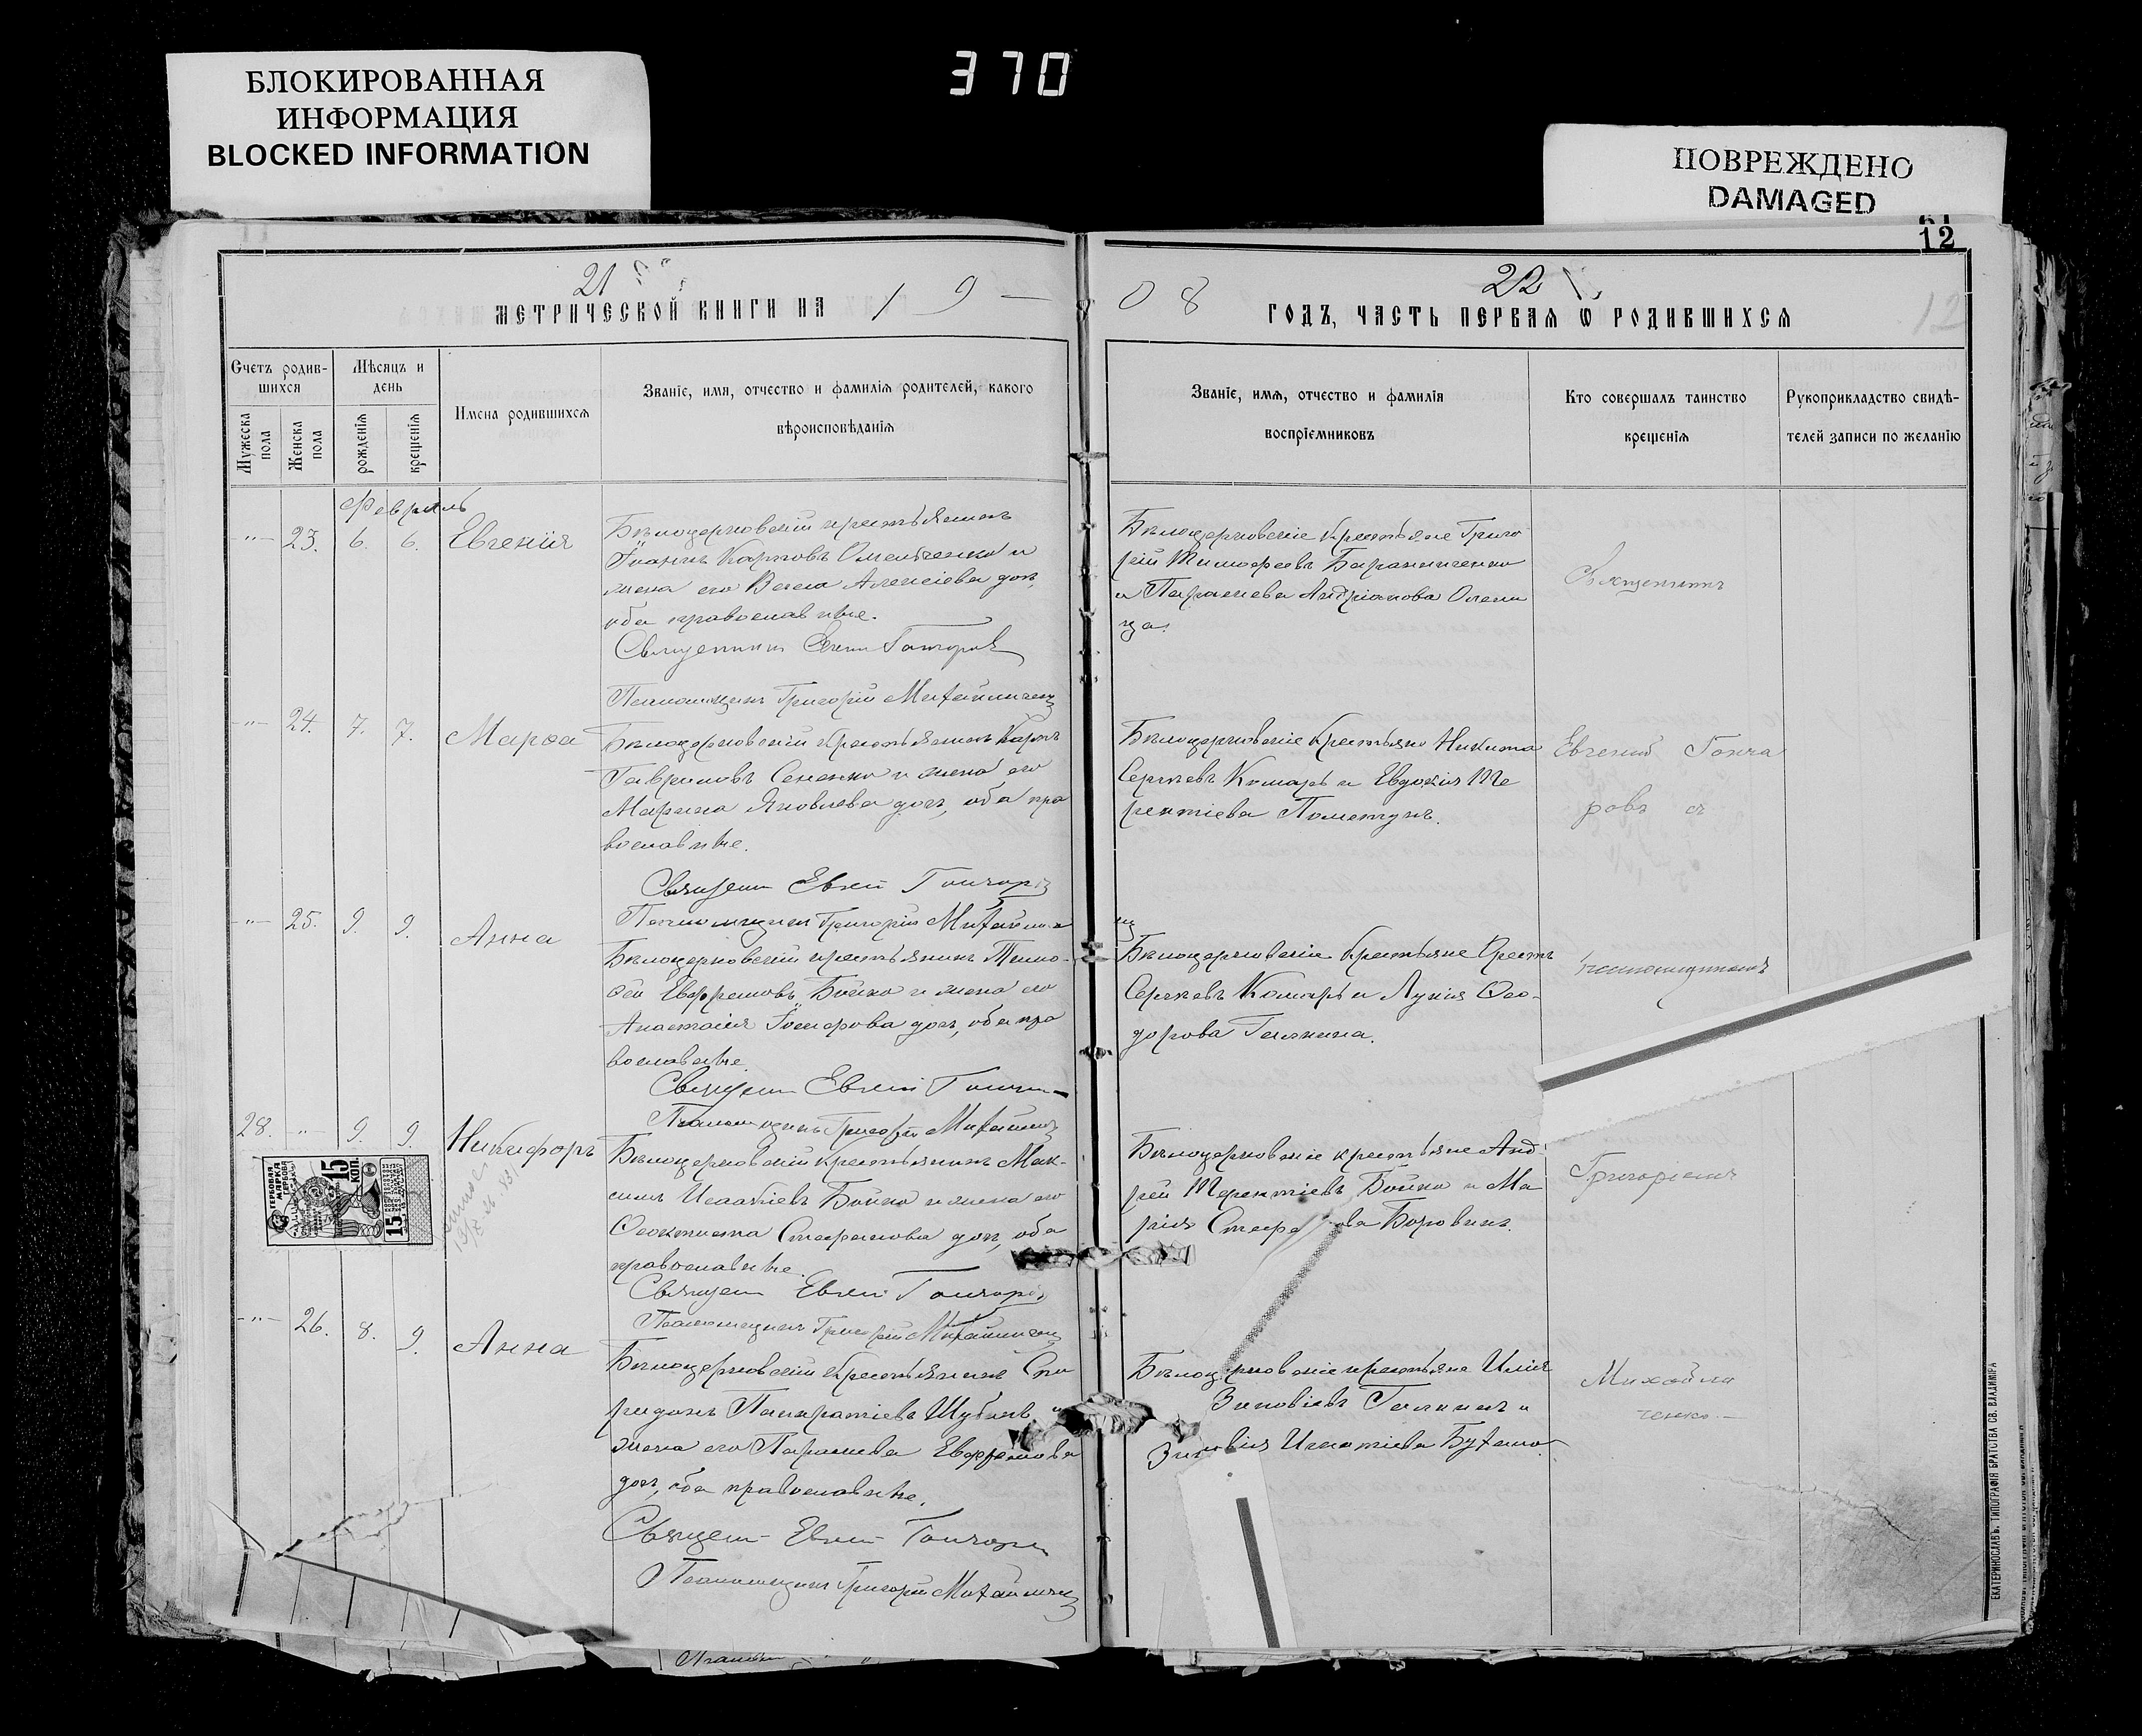 БЛОКИРОВАННАЯ
ИНФОРМАЦИЯ
BLOCKED INFORMATION
370
ПОВРЕЖДЕНО
DAMAGED
12
21
МЕТРИЧЕСКОЙ КНИГИ НА 1 9 —
Счетъ родив-
шихся
Мужеска
пола
Женска
пола
Мѣсяцъ и
день
рожденія
крещенія
Имена родившихся
Званіе, имя, отчество и фамилія родителей, какого
вѣроисповѣданія
Февраль
23. 6. 6. Евгенія
Бѣлоцерковскій крестьянинъ
Іоаннъ Карповъ Омельченко и
жена его Васса Алексіева дочь,
оба православные.
Священникъ Гончаровъ
Псаломщикъ Григорій Михайличенко
24. 7. 7. Марѳа
Бѣлоцерковскій крестьянинъ Карпъ
Гавриловъ Сененко и жена его
Марина Яковлева дочь, оба пра
вославные.
Священ Евгеній Гончаровъ
Псаломщикъ Григорій
25. 9. 9. Анна
Бѣлоцерковскій крестьянинъ Тимо-
ѳей Евфремовъ Бойко и жена его
Анастасія дочь, оба пра
вославные.
Священ Евгеній
Псаломщикъ Григорій
28. 9. 9. Никифоръ
Бѣлоцерковскій крестьянинъ Мак-
симъ Исаакіевъ Бойко и жена его
Ѳеоктиста Стефанова дочь, оба
православные.
Священ Евгеній Гончаровъ
Псаломщикъ Григорій Михайличенко
ГЕРБОВАЯ
МАРКА
15
КОП.
15
26. 8. 9. Анна
Бѣлоцерковскій крестьянинъ Спи
ридонъ Панкратіевъ Шубинъ и
жена его Параскева Евфремова
дочь, оба православные.
Священ Евгеній Гончаровъ
Псаломщикъ Григорій Михайличенко
22
0 8 ГОДЪ, ЧАСТЬ ПЕРВАЯ Ѡ РОДИВШИХСЯ
12
Званіе, имя, отчество и фамилія
воспріемниковъ
Кто совершалъ таинство
крещенія
Рукоприкладство свидѣ-
телей записи по желанію
Бѣлоцерковскіе крестьяне Григо
рій Тимофеевъ Баранниченко
и Параскева Андріанова
Священникъ
Бѣлоцерковскіе крестьяне Никита
Сергѣевъ Комаръ и Евдокія Те
рентіева Пометунъ.
Евгеній Гонча
ровъ съ
Бѣлоцерковскіе крестьяне
Сергѣевъ Комаръ и Лукія Ѳео-
дорова Галкина.
псаломщикомъ
Бѣлоцерковскіе крестьяне Анд
рей Терентіевъ Бойко и Ма
рія
Григоріемъ
Бѣлоцерковскіе крестьяне Илія
Зиновіевъ Галкинъ и
Игнатіева
Михайли
ченко.—
ЕКАТЕРИНОСЛАВЪ. ТИПОГРАФІЯ БРАТСТВА СВ. ВЛАДИМІРА